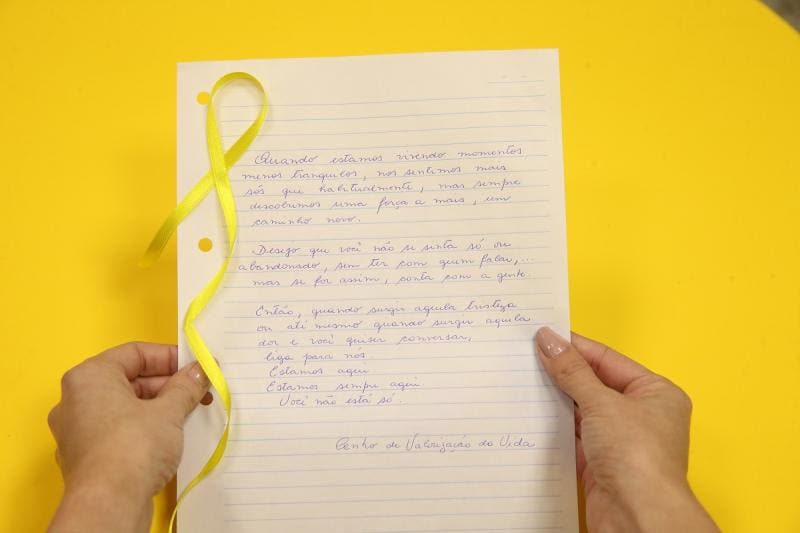 Quando estamos vivendo momentos
menos tranquilos, nos sentimos mais
sós que habitualmente, mas sempre
descobrimos uma força a mais, um
caminho novo.
Desejo que você não se sinta só ou
abandonado, sem ter com quem falar,...
mas se for assim, conta com a gente.
Então, quando surgir aquela tristeza
ou até mesmo quando surgir aquela
dor e você quiser conversar,
liga para nós.
Estamos aqui
Estamos sempre aqui.
Você não está só.
Centro de Valorização da Vida